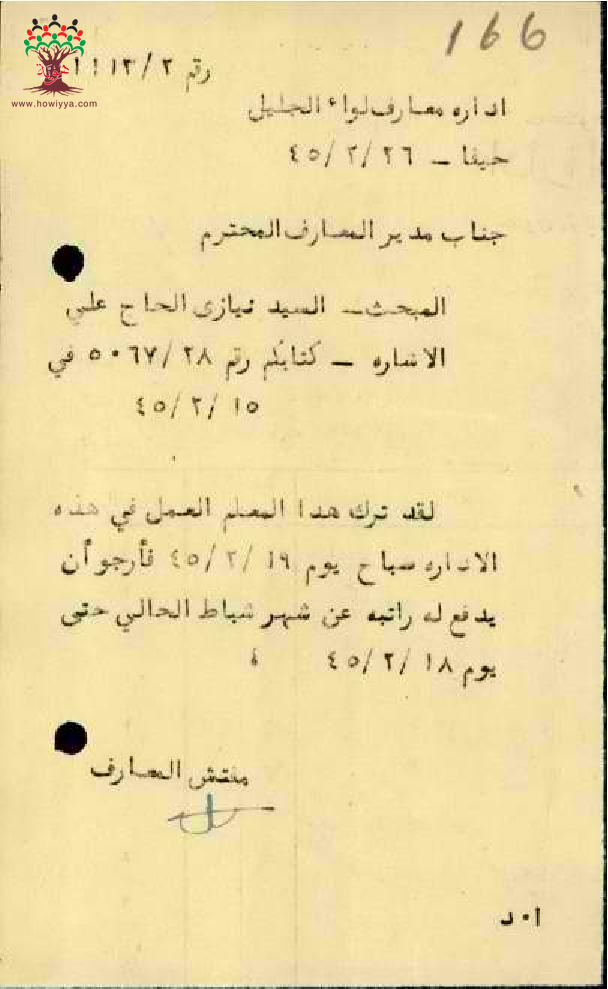 166
رقم ١١١٣/٢
www.howiyya.com
اداره معارف لواء الجليل
حيفا – ٤٥/٢/٢٦
جناب مدير المعارف المحترم
المبحث – السيد نيازى الحاج علي
الاشاره – كتابكم رقم ٥٠٦٧/٢٨ في
٤٥/٢/١٥
لقد ترك هذا المعلم العمل في هذه
الاداره سباح يوم ٤٥/٢/١٩ فأرجو أن
يدفع له راتبه عن شهر شباط الحالي حتى
يوم ٤٥/٢/١٨ ؛
مفتش المعارف
ا٠د